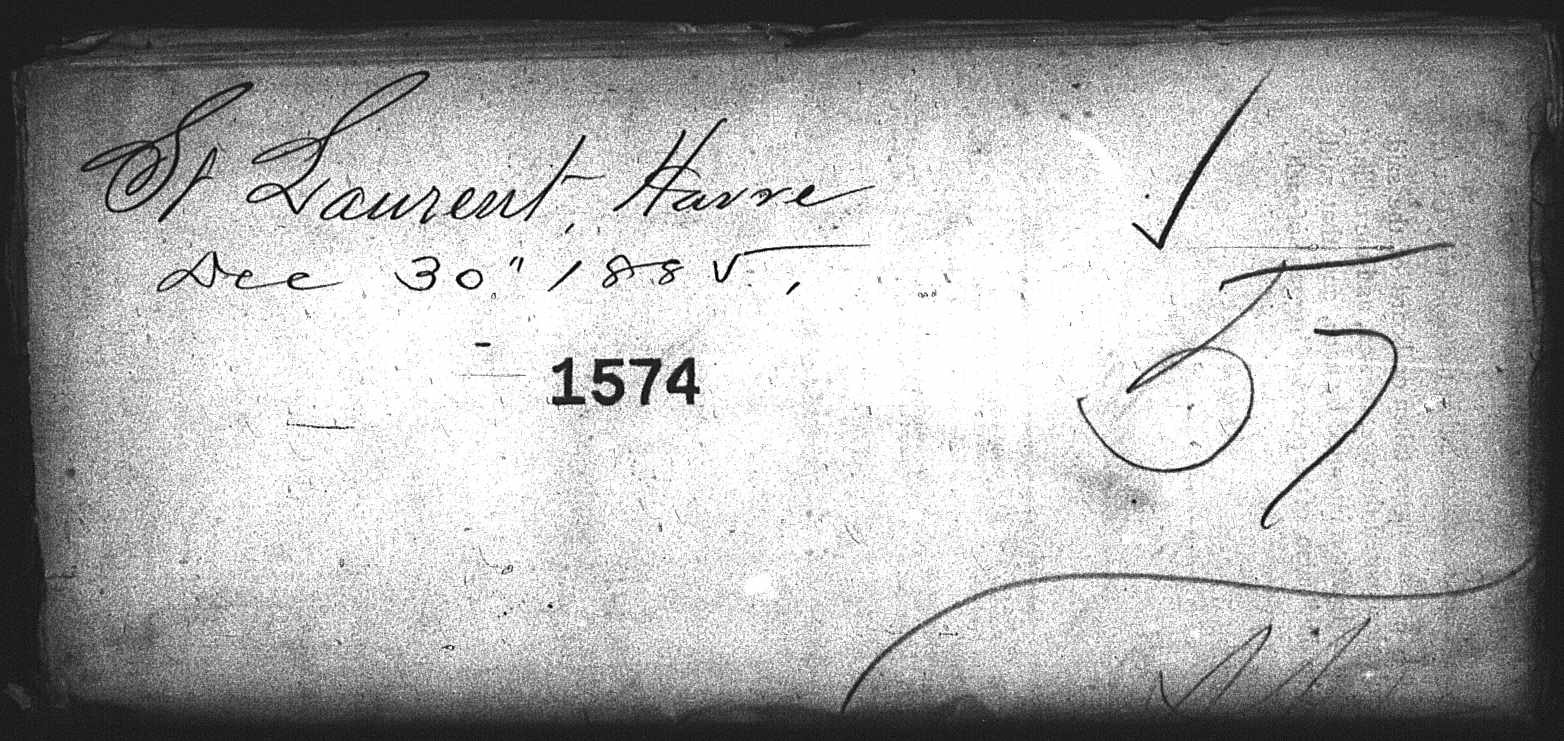 St Laurent, Havre
Dec 30" 1885,
57
1574